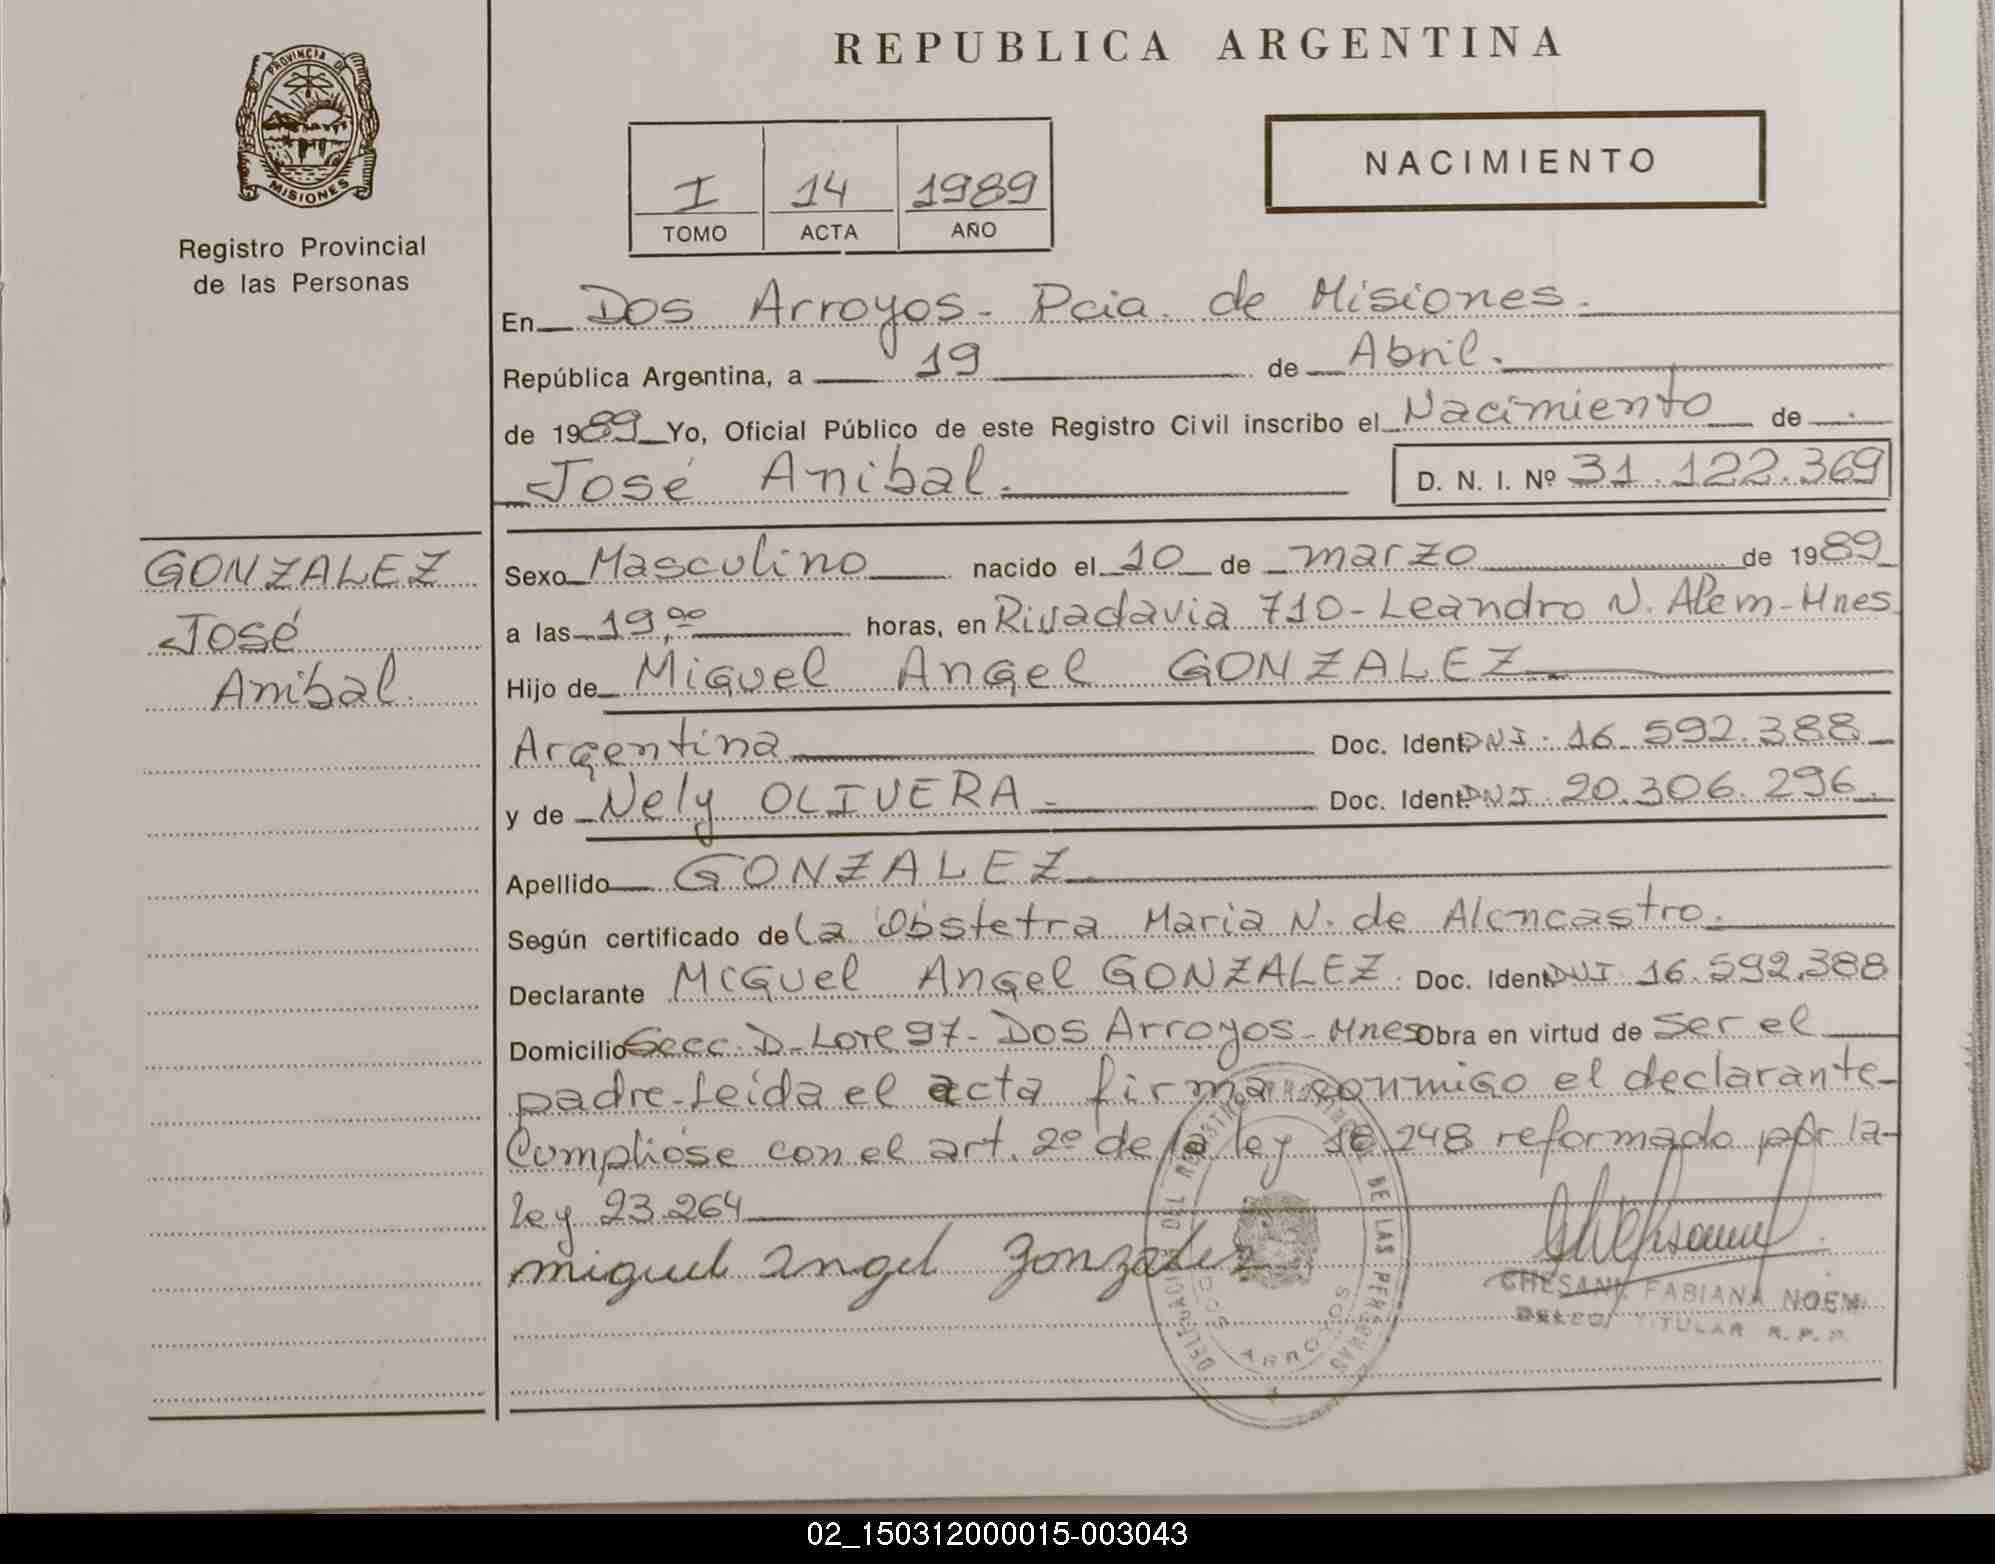 REPUBLICA ARGENTINA
PROVINCIA DE
MISIONES
Registro Provincial
de las Personas
NACIMIENTO
I 14 1989
TOMO ACTA AÑO
En Dos Arroyos - Pcia. de Misiones.
República Argentina, a 19 de Abril.
de 1989 Yo, Oficial Público de este Registro Civil inscribo el Nacimiento de
José Anibal. D. N. I. Nº 31.122.369
GONZALEZ
José
Anibal.
Sexo Masculino nacido el 10 de marzo de 1989
a las 19,00 horas, en Rivadavia 710 - Leandro N. Alem - Mnes
Hijo de Miguel Angel GONZALEZ
Argentina Doc. Ident. DNI. 16.592.388
y de Nely OLIVERA - Doc. Ident. DNI. 20.306.296.
Apellido GONZALEZ
Según certificado de la Obstetra Maria N. de Alencastro.
Declarante Miguel Angel GONZALEZ. Doc. Ident. DNI 16.592.388
Domicilio Secc. D - Lote 97 - Dos Arroyos - Mnes Obra en virtud de ser el
padre - Leída el acta firma conmigo el declarante -
Cumplióse con el art. 2º de la ley 18.248 reformado por la
ley 23.264
miguel angel gonzalez
DELEGACION DEL REGISTRO PROVINCIAL DE LAS PERSONAS
DOS ARROYOS
CHESANI, FABIANA NOEMI
TITULAR R. P. P.
02_150312000015-003043